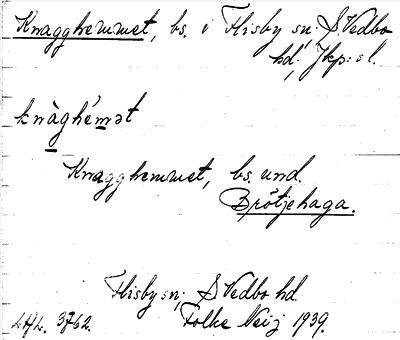 Knagghemmet, bs. i Flisby sn; S. Vedbo
hd; Jkp: sl.
knàghémət
Knagghemmet, bs. und.
Brötjehaga.
Flisby sn; S Vedbo hd.
Folke Neij 1939.